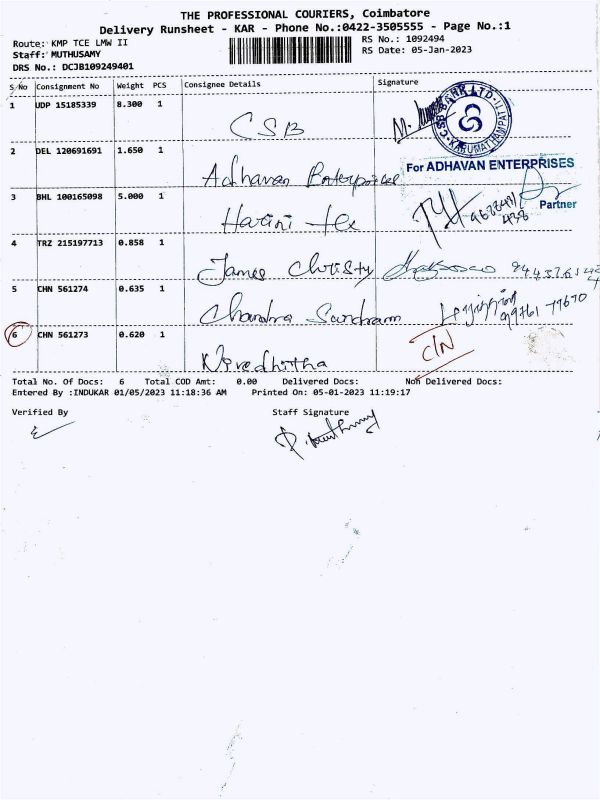 THE PROFESSIONAL COURIERS, Coimbatore
Delivery Runsheet - KAR - Phone No.:0422-3505555 - Page No.:1
Route: KMP TCE LMW II
RS No.: 1092494
Staff: MUTHUSAMY
RS Date: 05-Jan-2023
DRS No.: DCJB109249401
S/No Consignment No Weight PCS Consignee Details Signature
1 UDP 15185339 8.300 1
CSB
CSB BANK LTD
2 DEL 120691691 1.650 1
Adhavan Enterprises
For ADHAVAN ENTERPRISES
Partner
3 BHL 100165098 5.000 1
Harini Tex
4 TRZ 215197713 0.858 1
James Christy
5 CHN 561274 0.635 1
Chandra Sundram
99761 77670
6 CHN 561273 0.620 1
Nivedhitha
C/N
Total No. Of Docs: 6 Total COD Amt: 0.00 Delivered Docs: Non Delivered Docs:
Entered By :INDUKAR 01/05/2023 11:18:36 AM Printed On: 05-01-2023 11:19:17
Verified By Staff Signature